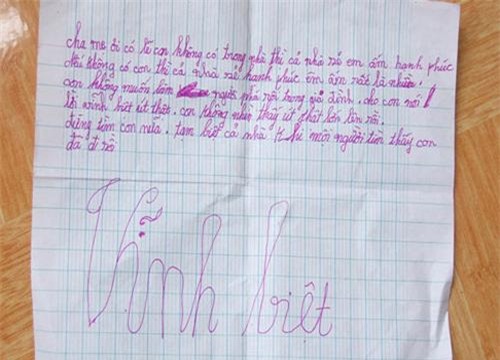 cha mẹ ơi có lẽ con không có trong nhà thì cả nhà sẽ em ấm hạnh phúc
nếu không có con thì cả nhà sẽ hạnh phúc êm ấm rất là nhiều
con không muốn làm người nhà rối trong gia đình. cho con nói 1
lời vĩnh biệt út thật. con không nhìn thấy út thật lớn lên rồi.
đừng tìm con nữa. tạm biệt cả nhà khi mọi người tìm thấy con
đã đi rồ
Vĩnh biêt